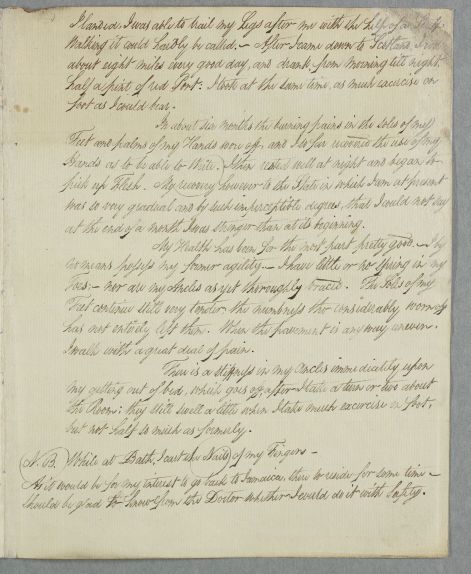 I landed, I was able to trail my Legs after me with the help of a Stick.
Walking it could hardly be called. – After I came down to Scotland, I rode
about eight miles every good day, and drank from morning till night
half a pint of red Port: I took at the same time, as much exercise on
foot as I could bear.
In about six months the burning pains in the soles of my
Feet and palms of my Hands wore off, and I so far recovered the use of my
Hands as to be able to Write. I then rested well at night and began to
pick up Flesh. My recovery however to the State in which I am at present
was so very gradual and by such imperceptible degrees, that I could not say
at the end of a month I was stronger than at its beginning.
My Health has been for the most part pretty good. – I by
no means possess my former agility. – I have little or no Spring in my
Toes: – nor are my Ancles as yet thoroughly braced. The Soles of my
Feet continue still very tender, the numbness tho' considerably worn off
has not entirely left them. When the pavement is any way uneven,
I walk with a great deal of pain.
There is a stiffness in my Ancles immediately upon
my getting out of bed, which goes off, after I take a turn or two about
the Room: they still swell a little when I take much exercise on foot,
but not half so much as formerly.
N.B. While at Bath, I cast the Nails of my Fingers –
As it would be for my interest to go back to Jamaica, there to reside for some time –
should be glad to know from the Doctor whether I could do it with Safety.